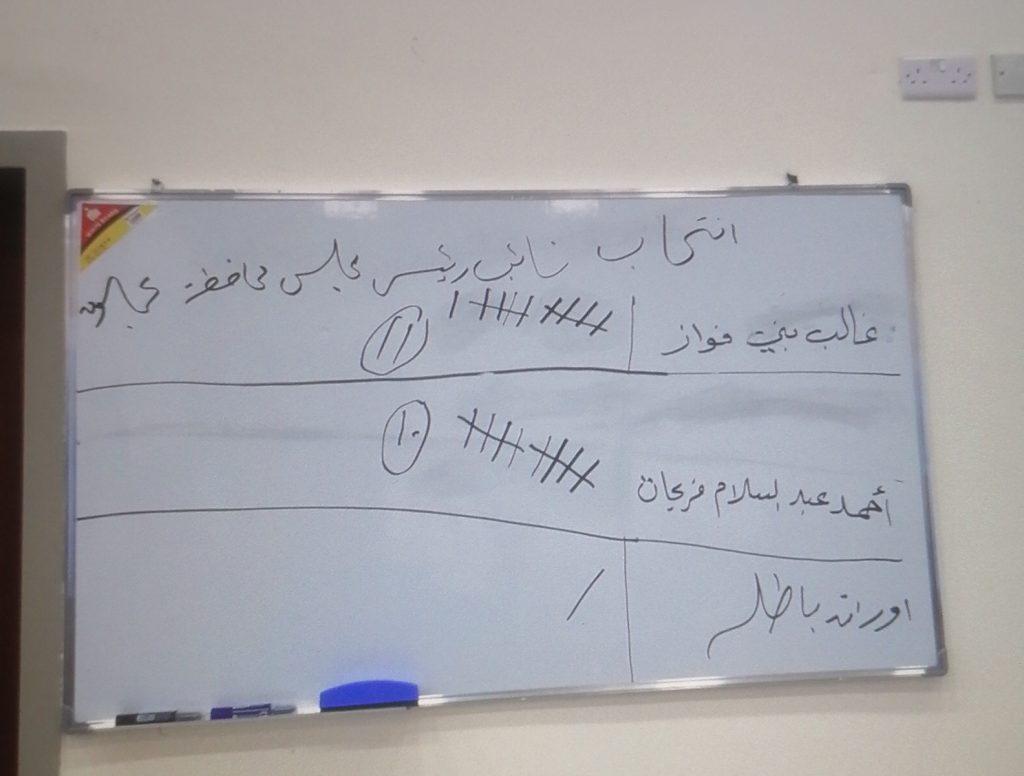 انتخاب نائب رئيس مجلس محافظة عجلون
غالب بني فواز
11
أحمد عبد السلام فريحات
١٠
اوراق باطلة